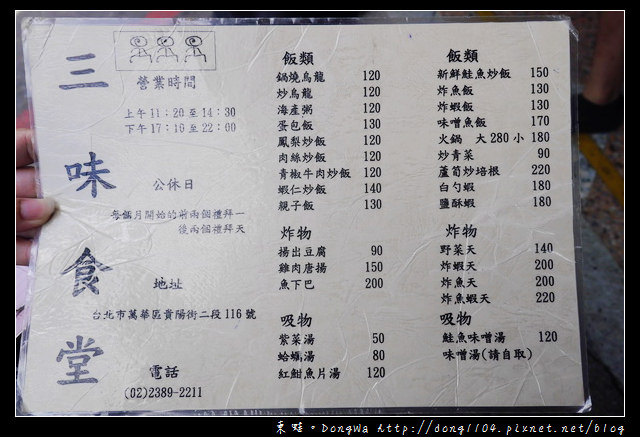 三味食堂
營業時間
上午11:20至14:30
下午17:10至22:00
公休日
每個月開始的前兩個禮拜一
後兩個禮拜天
地址
台北市萬華區貴陽街二段116號
電話
(02)2389-2211
飯類
鍋燒烏龍 120
炒烏龍 120
海產粥 120
蛋包飯 130
鳳梨炒飯 120
肉絲炒飯 120
青椒牛肉炒飯 120
蝦仁炒飯 140
親子飯 130
炸物
揚出豆腐 90
雞肉唐揚 150
魚下巴 200
吸物
紫菜湯 50
蛤蠣湯 80
紅魽魚片湯 120
飯類
新鮮鮭魚炒飯 150
炸魚飯 130
炸蝦飯 130
味噌魚飯 170
火鍋 大280小180
炒青菜 90
蘆筍炒培根 220
白勺蝦 180
鹽酥蝦 180
炸物
野菜天 140
炸蝦天 200
炸魚天 200
炸魚蝦天 220
吸物
鮭魚味噌湯 120
味噌湯(請自取)
東哇。DongWa Http://dong1104.pixnet.net/blog